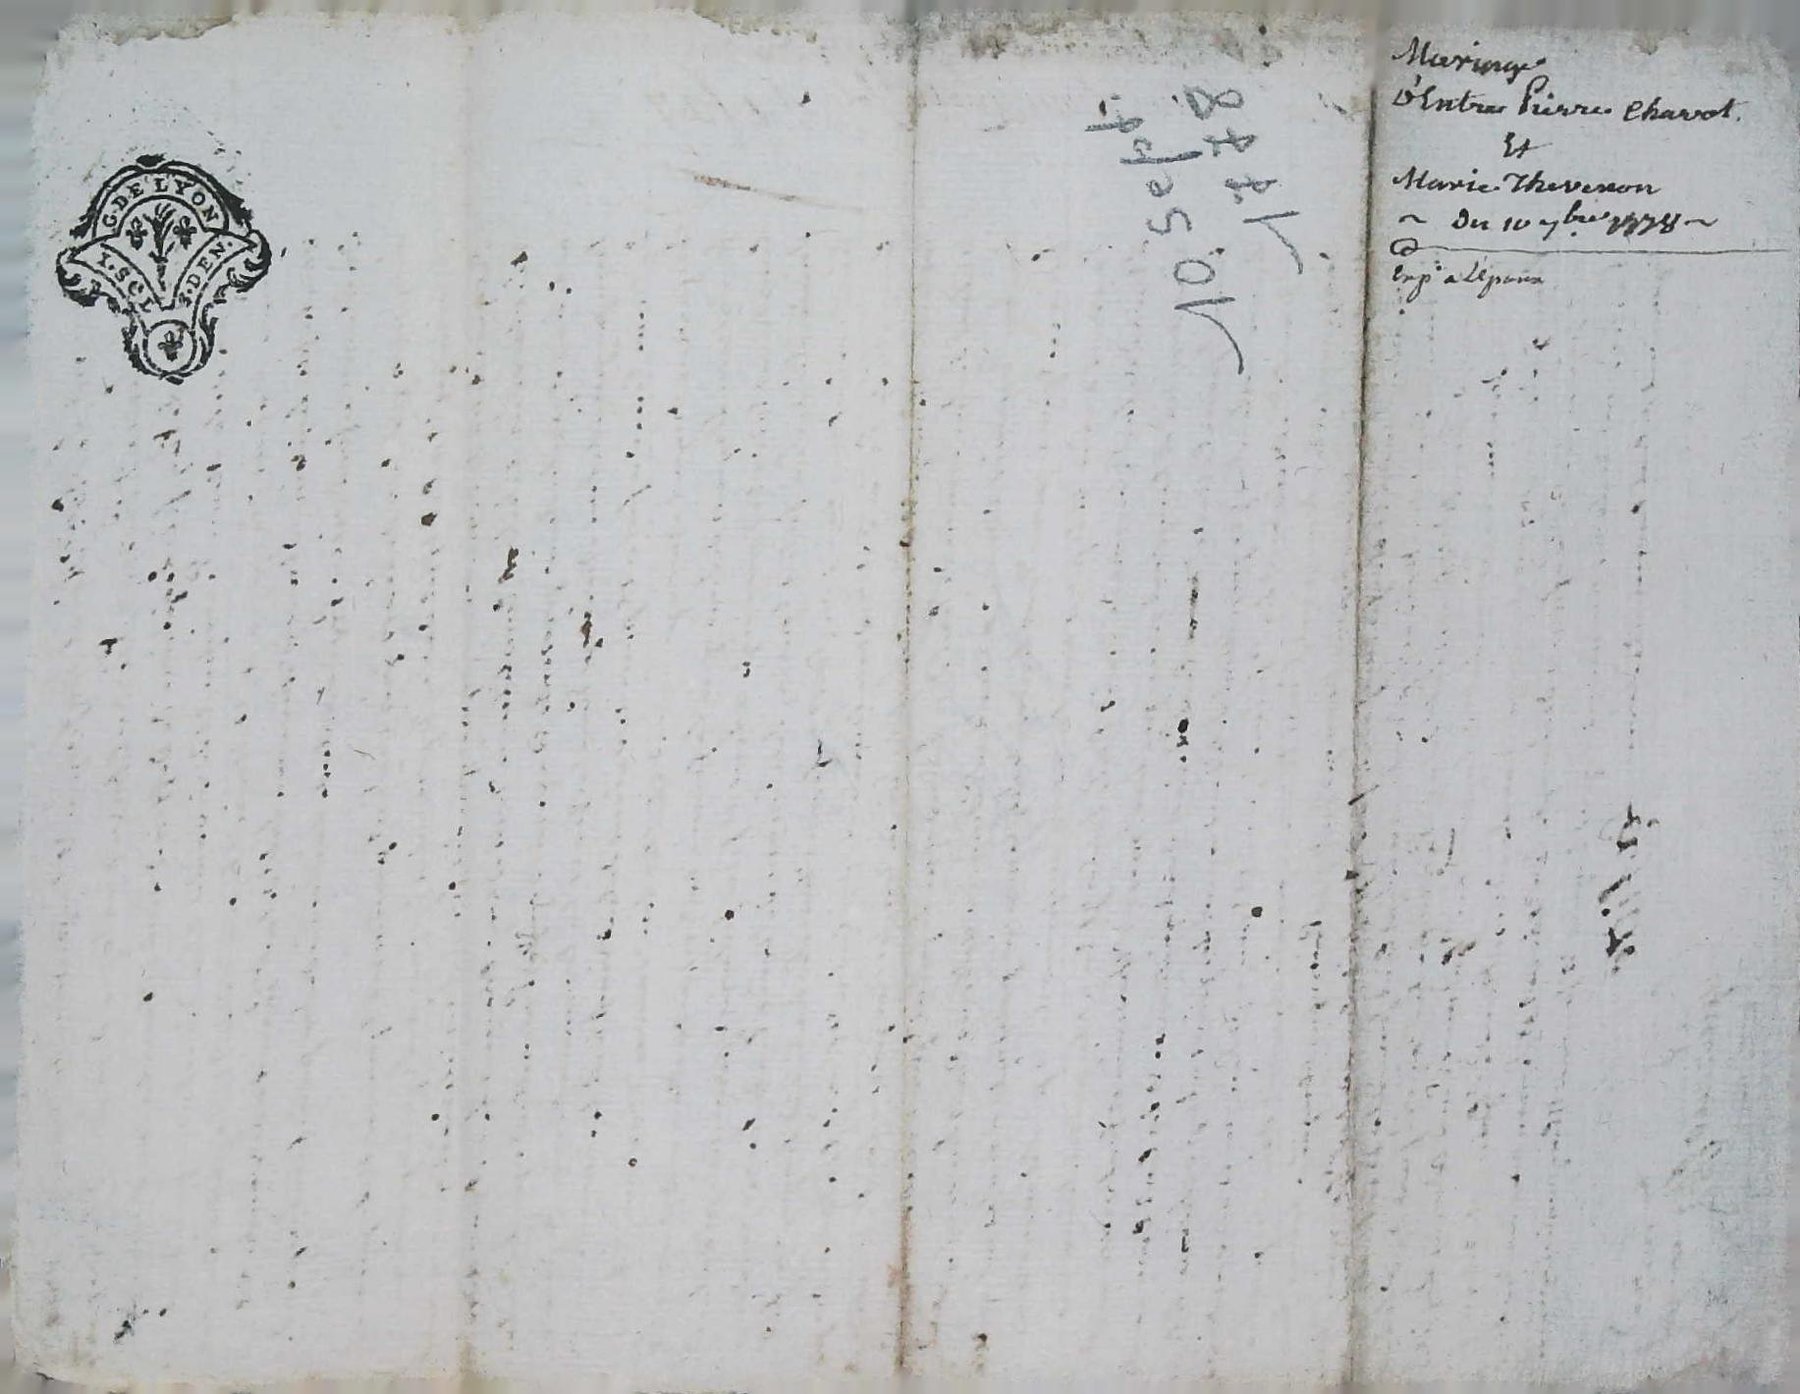 G. DE LYON
I. SOL
4. DEN.
10 Sept
1778
Mariage
D'Entre Pierre Charot.
Et
Marie Thevenon
~ Du 10 7bre 1778 ~
Exp.e a L'Epoux